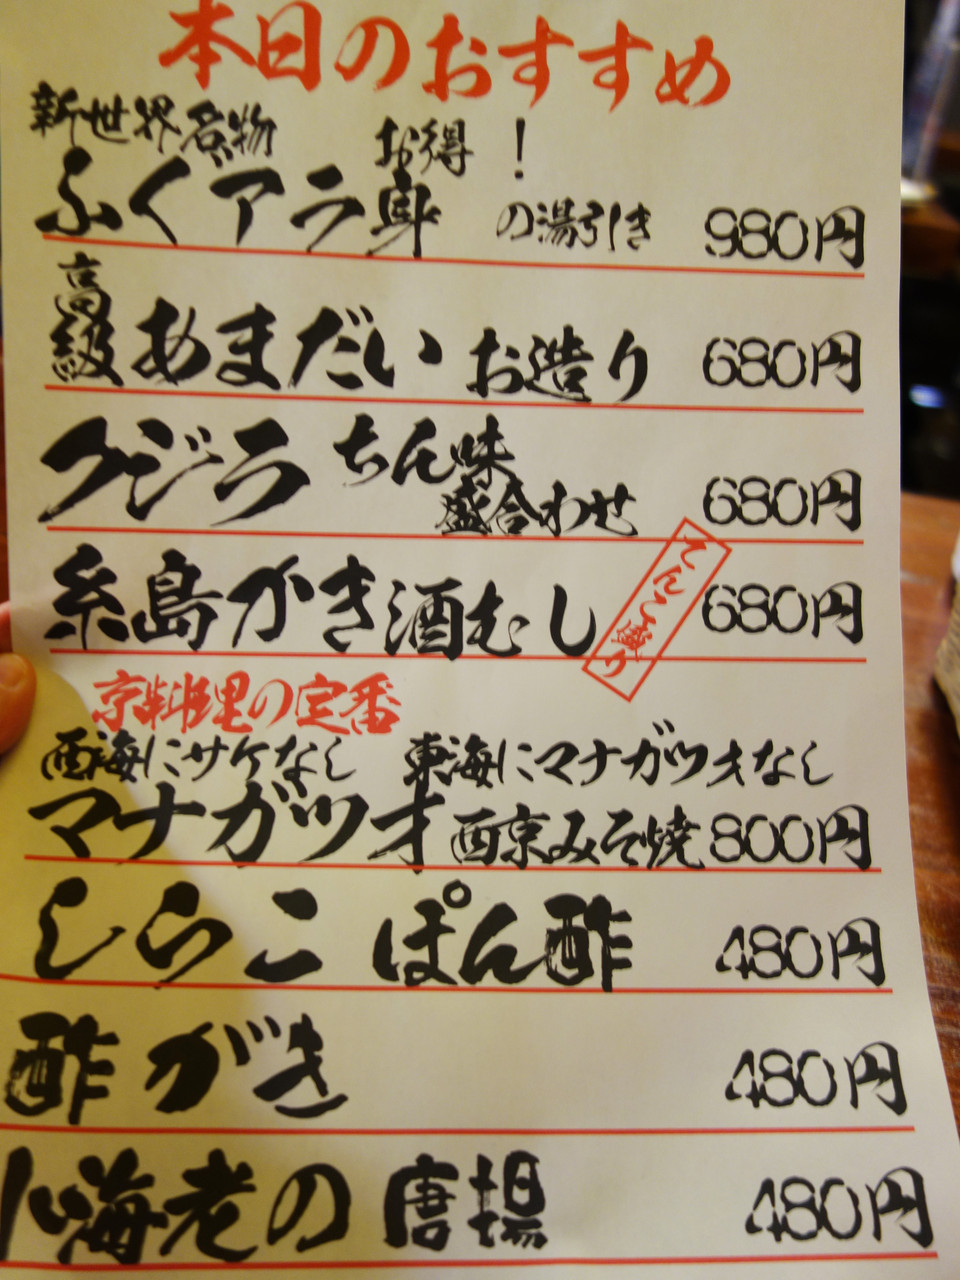 本日のおすすめ
新世界名物 お得!
ふくアラ身 の湯引き 980円
高級 あまだい お造り 680円
クジラ ちん味 盛合わせ 680円
糸島かき酒むし てんこ盛り 680円
京料理の定番
西海にサケなし 東海にマナガツオなし
マナガツオ西京みそ焼 800円
しらこ ぽん酢 480円
酢がき 480円
小海老の唐揚 480円